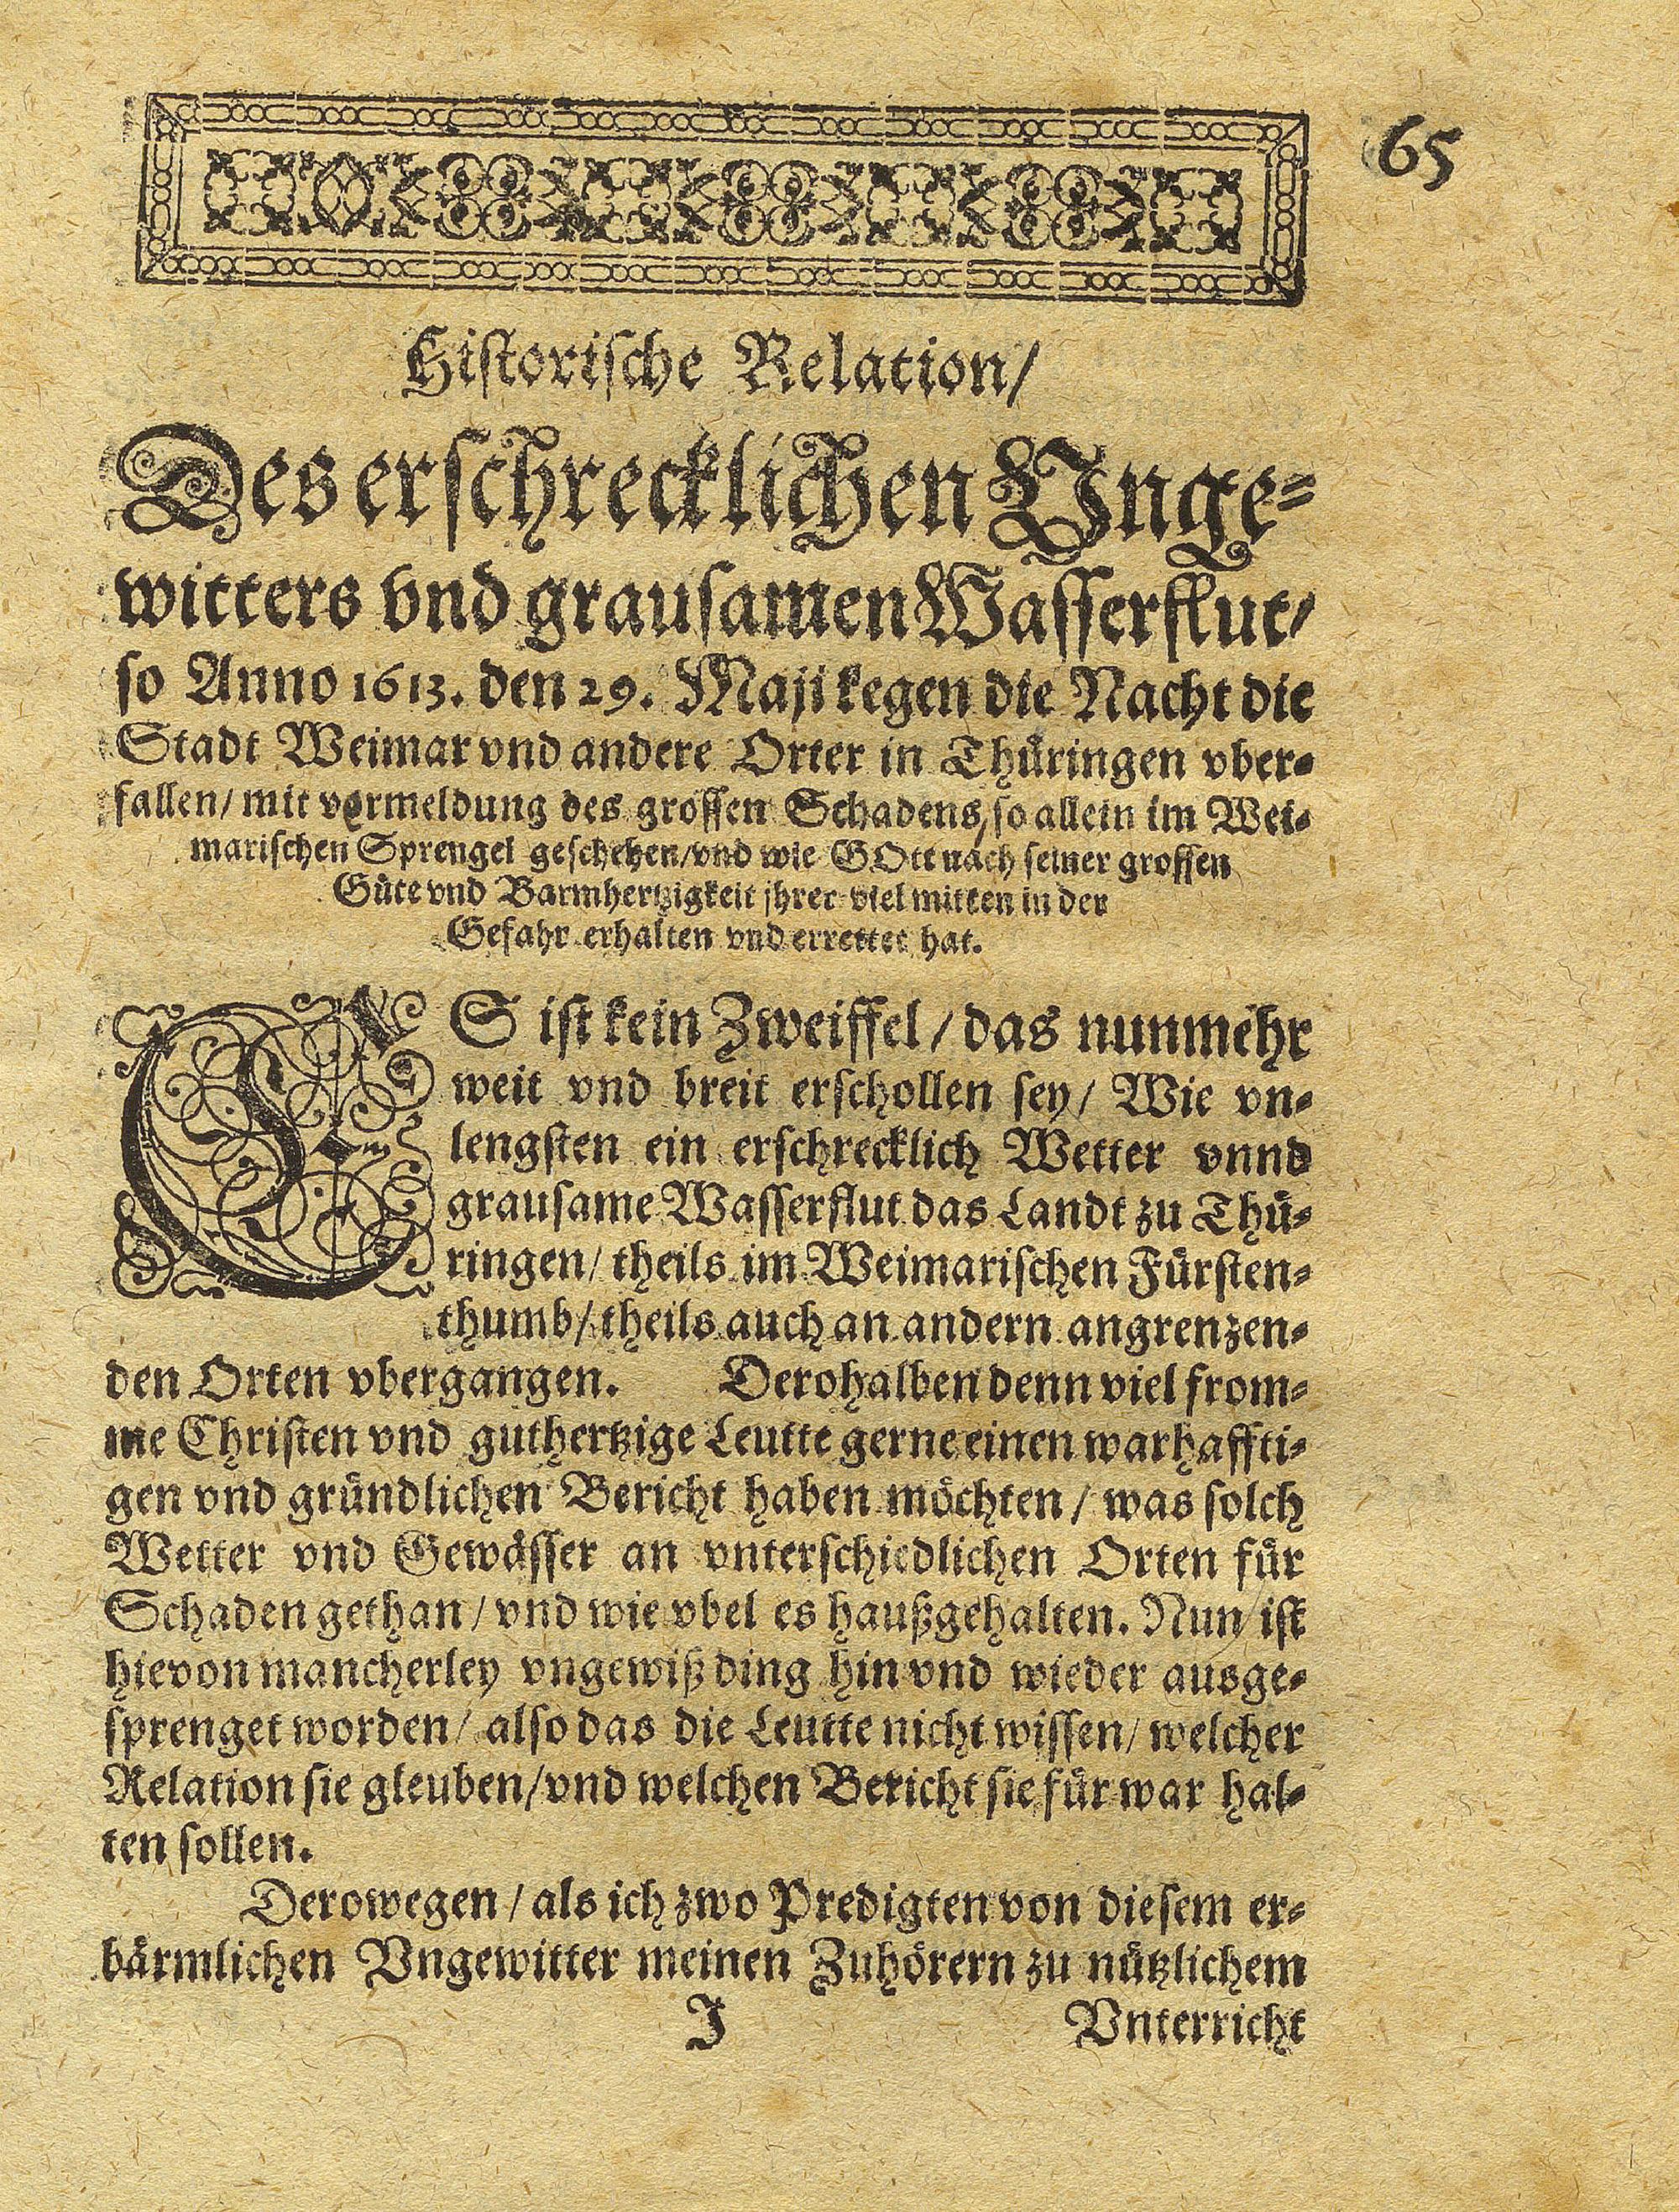 65
Historische Relation/
Des erschrecklichen Vnge-
witters vnd grausamen Wasserflut/
so Anno 1613. den 29. Maji kegen die Nacht die
Stadt Weimar vnd andere Orter in Thüringen vber-
fallen/ mit vermeldung des grossen Schadens/ so allein im Wei-
marischen Sprengel geschehen/ vnd wie GOtt nach seiner grossen
Güte vnd Barmhertzigkeit jhrer viel mitten in der
Gefahr erhalten vnd errettet hat.
ES ist kein Zweiffel/ das nunmehr
weit vnd breit erschollen sey/ Wie vn-
lengsten ein erschrecklich Wetter vnnd
grausame Wasserflut das Landt zu Thü-
ringen/ theils im Weimarischen Fürsten-
thumb/ theils auch an andern angrenzen-
den Orten vbergangen. Derohalben denn viel from-
me Christen vnd guthertzige Leutte gerne einen warhaffti-
gen vnd gründlichen Bericht haben möchten/ was solch
Wetter vnd Gewässer an vnterschiedlichen Orten für
Schaden gethan/ vnd wie vbel es haußgehalten. Nun ist
hievon mancherley vngewiß ding hin vnd wieder ausge-
sprenget worden/ also das die Leutte nicht wissen/ welcher
Relation sie gleuben/ vnd welchen Bericht sie für war hal-
ten sollen.
Derowegen/ als ich zwo Predigten von diesem er-
bärmlichen Vngewitter meinen Zuhörern zu nützlichem
I Vnterricht